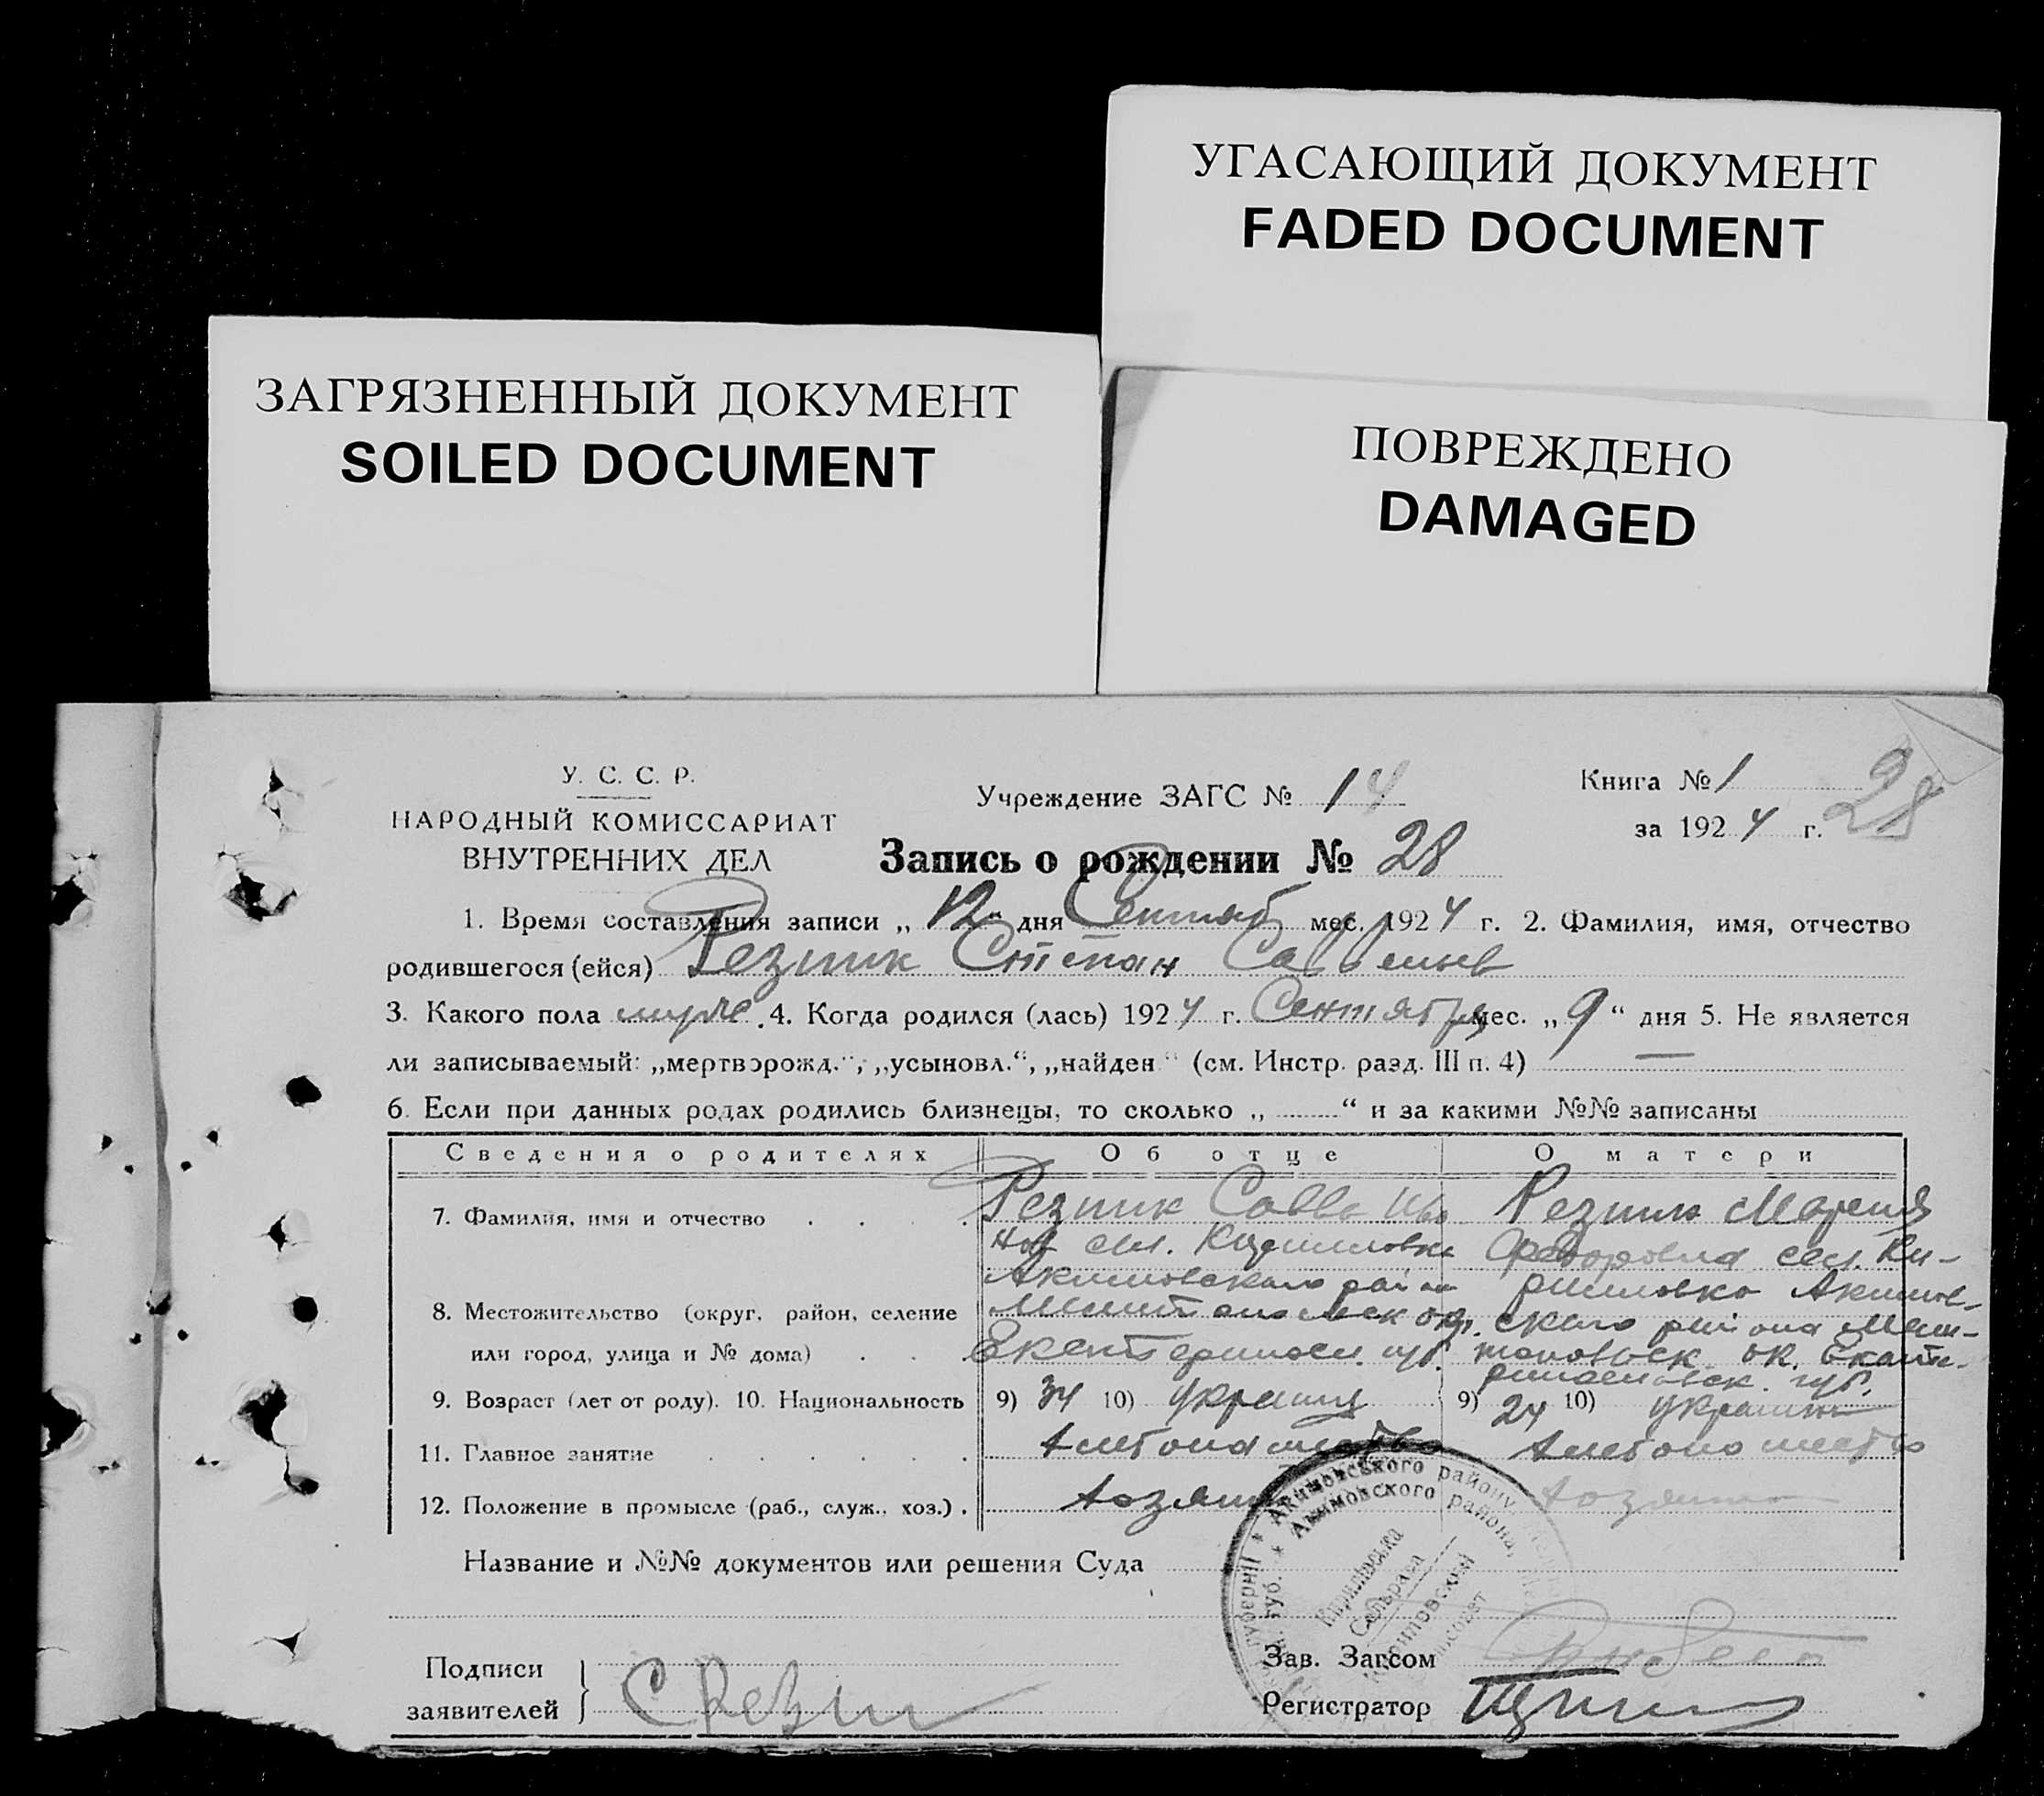 УГАСАЮЩИЙ ДОКУМЕНТ
FADED DOCUMENT
ЗАГРЯЗНЕННЫЙ ДОКУМЕНТ
SOILED DOCUMENT
ПОВРЕЖДЕНО
DAMAGED
У. С. С. Р.
НАРОДНЫЙ КОМИССАРИАТ
ВНУТРЕННИХ ДЕЛ
Учреждение ЗАГС № 14
Книга № 1
за 1924 г. 28
Запись о рождении № 28
1. Время составления записи „12“ дня Сентяб мес. 1924 г. 2. Фамилия, имя, отчество
родившегося (ейся) Резник Степан
3. Какого пола муже. 4. Когда родился (лась) 1924 г. Сентября мес. „9“ дня 5. Не является
ли записываемый: „мертворожд.“, „усыновл.“, „найден“ (см. Инстр. разд. III п. 4) —
6. Если при данных родах родились близнецы, то сколько „ “ и за какими №№ записаны
Сведения о родителях Об отце О матери
7. Фамилия, имя и отчество Резник Савва Ива Резник Мария
нов сел. Федоровна сел. Ки-
Акимовского район риловка Акимов-
8. Местожительство (округ, район, селение окр. ского района Мели-
или город, улица и № дома) губ. ок. Екате-
губ.
9. Возраст (лет от роду). 10. Национальность 9) 34 10) украинц 9) 24 10)
11. Главное занятие
12. Положение в промысле (раб., служ., хоз.)
Акимовського району
Акимовского района
губернії
губ.
Кирилівська
Сельрада
Кирилловский
сельсовет
Название и №№ документов или решения Суда
Подписи
заявителей
С Резн
Зав. Загсом
Регистратор